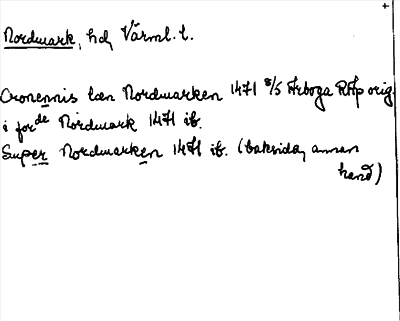 +
Nordmark, hd, Värml. l.
Cronennis læn Nordmarken 1471 8/5 Arboga RAp orig.
i forde Nordmark 1471 ib.
Super Nordmarken 1471 ib. (baksida, annan
hand)